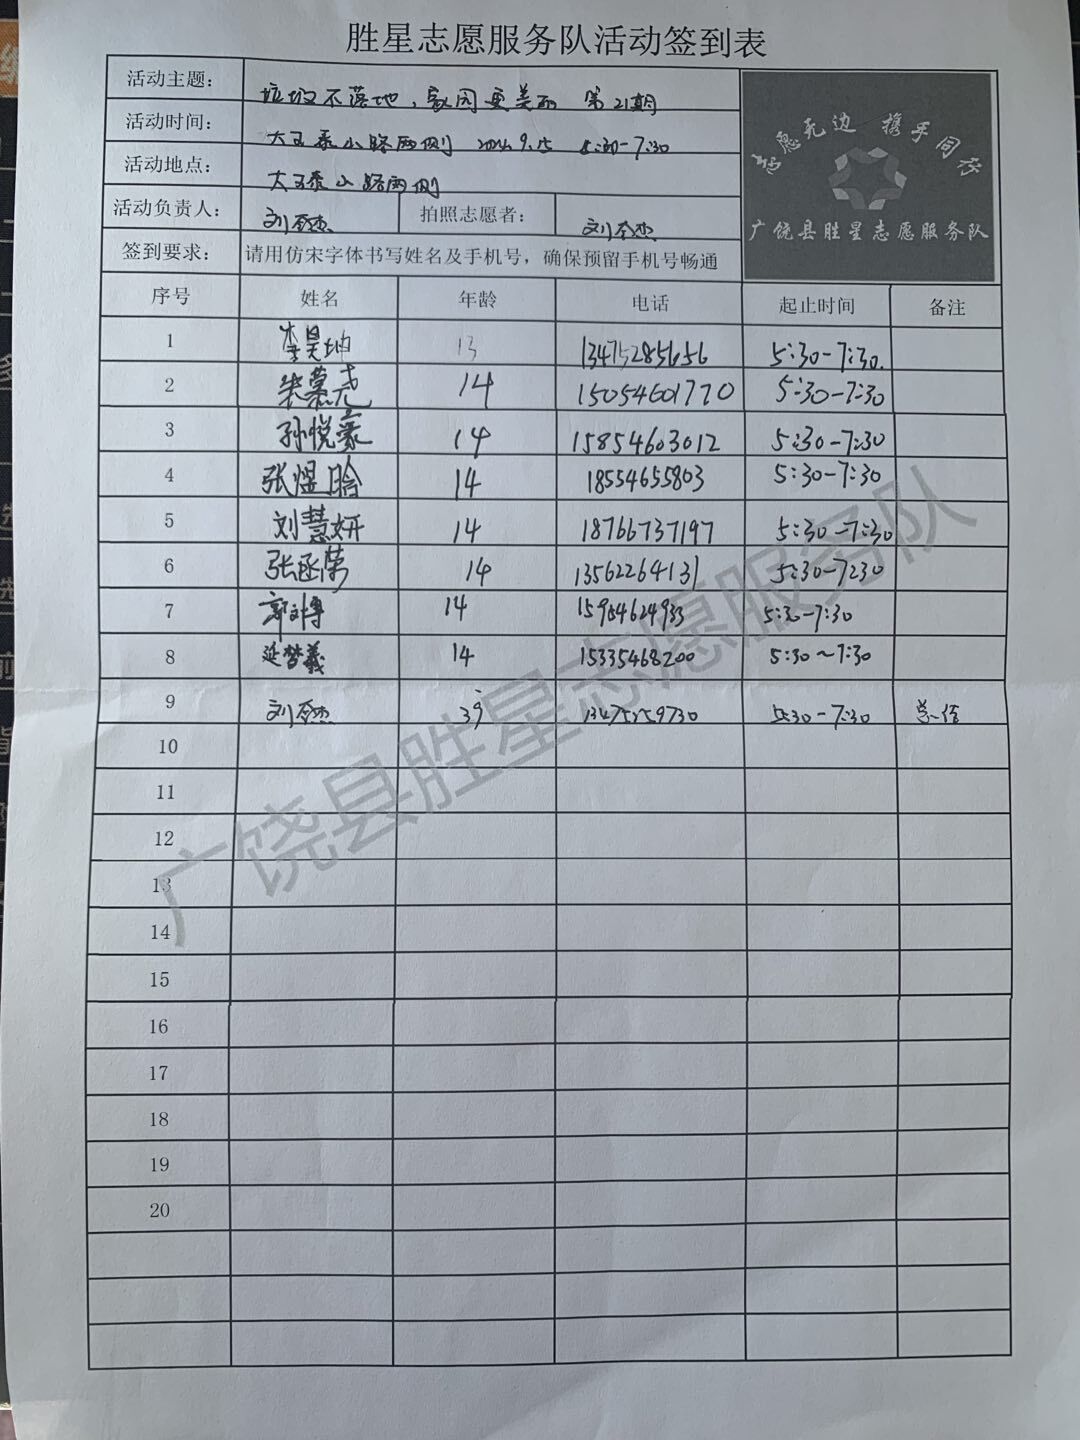 胜星志愿服务队活动签到表
活动主题： 垃圾不落地，家园更美丽 第21期
活动时间： 大王桑小路两侧 2024.9.15 5:30-7:30
活动地点： 大王桑小路两侧
活动负责人： 刘杰 拍照志愿者： 刘杰
签到要求： 请用仿宋字体书写姓名及手机号，确保预留手机号畅通
志愿无边 携手同行
广饶县胜星志愿服务队
序号 姓名 年龄 电话 起止时间 备注
1 李昊坤 13 13475285656 5:30-7:30.
2 朱慕尧 14 15054601770 5:30-7:30
3 孙悦豪 14 15854603012 5:30-7:30
4 张煜晗 14 18554655803 5:30-7:30
5 刘慧妍 14 18766737197 5:30-7:30
6 张函荣 14 13562264131 5:30-7:30
7 郭文博 14 15954624933 5:30-7:30
8 延梦羲 14 15335468200 5:30~7:30
9 刘杰 39 13475259730 5:30-7:30
10
11
12
13
14
15
16
17
18
19
20
广饶县胜星志愿服务队